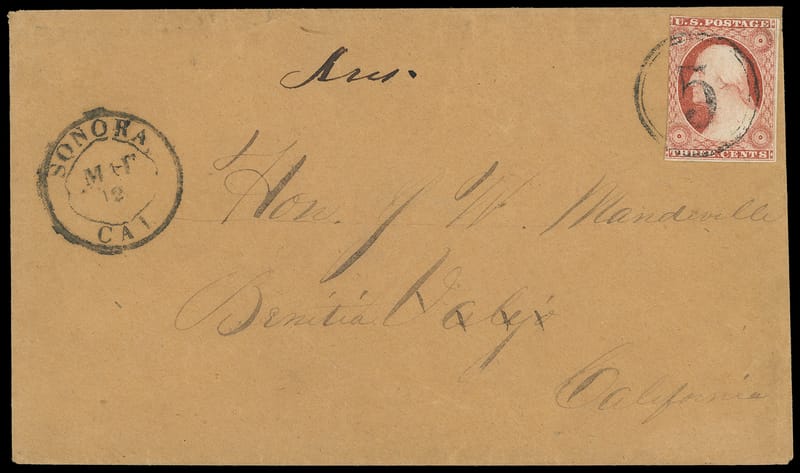 U.S. POSTAGE
5
THREE CENTS
Ans.
SONORA,
MAR
12
CAL
Hon. J W. Mandeville
Benitia Valejo
California